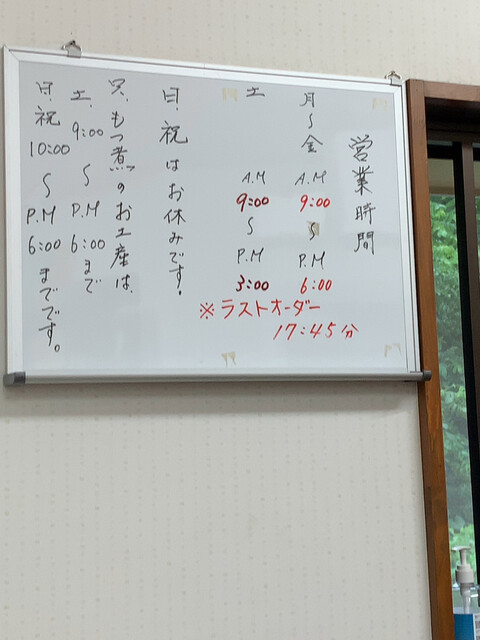 営業時間
月〜金 A.M 9:00 〜 P.M 6:00
土 A.M 9:00 〜 P.M 3:00
※ラストオーダー
17:45分
日.祝はお休みです.
只.もつ煮のお土産は.
土.9:00〜P.M 6:00まで
日.祝10:00〜P.M 6:00までです。